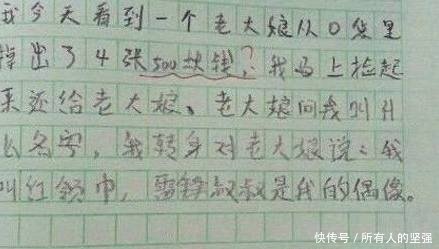 我今天看到一个老大娘从口袋里
掉出了4张500块钱,?我马上捡起
来还给老大娘、老大娘问我叫什
么名字,我转身对老大娘说:我
叫红领巾,雷锋叔叔是我的偶像。
快传号/所有人的坚强